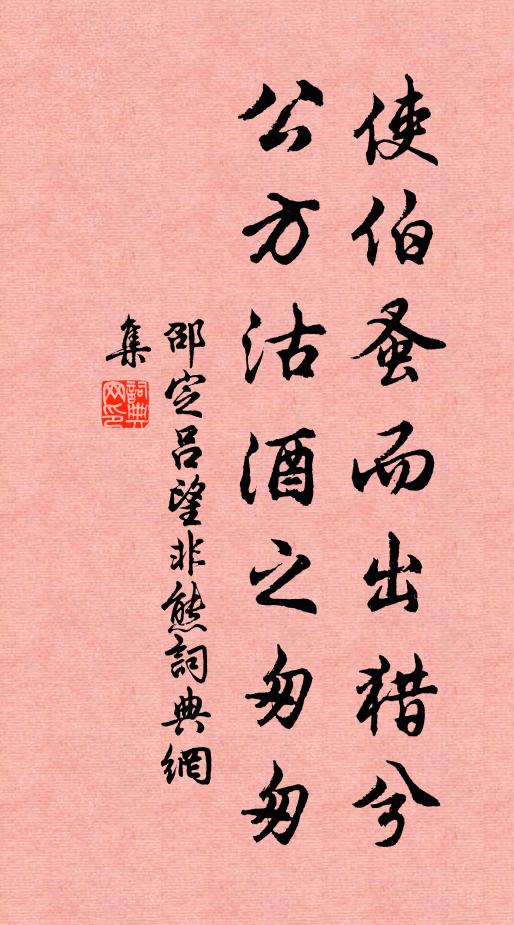 使伯蚤而出猎兮
公方沽酒之匆匆
邵定吕望非熊詞典網
集
詞典網印